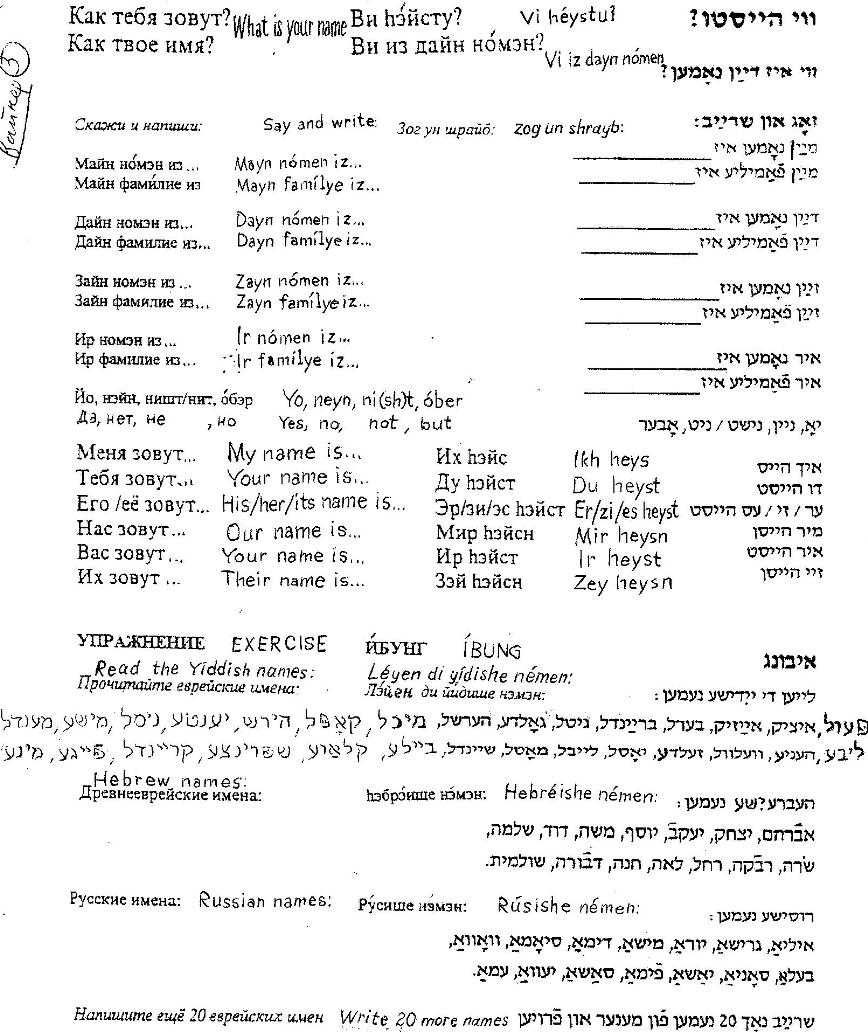 Как тебя зовут? What is your name Ви hэ́йсту? Vi héystu? ווי הייסטו?
Как твое имя? Ви из дайн но́мэн? Vi iz dayn nómen ווי איז דײַן נאָמען?
Скажи и напиши: Say and write: Зог ун шрайб: Zog un shrayb: זאָג און שרײַב:
Майн но́мэн из... Mayn nómen iz... מײַן נאָמען איז
Майн фами́лие из Mayn famílye iz... מײַן פֿאַמיליע איז
Дайн номэн из... Dayn nómen iz... דײַן נאָמען איז
Дайн фамилие из... Dayn famílye iz... דײַן פֿאַמיליע איז
Зайн номэн из... Zayn nómen iz... זײַן נאָמען איז
Зайн фамилие из... Zayn famílye iz... זײַן פֿאַמיליע איז
Ир номэн из... Ir nómen iz... איר נאָמען איז
Ир фамилие из... Ir famílye iz... איר פֿאַמיליע איז
Йо, нэйн, ништ/нит, о́бэр Yo, neyn, ni(sh)t, óber
Да, нет, не , но Yes, no, not, but יאָ, ניין, נישט / ניט, אָבער
Меня зовут... My name is... Их hэйс Ikh heys איך הייס
Тебя зовут... Your name is... Ду hэйст Du heyst דו הייסט
Его /её зовут... His/her/its name is... Эр/зи/эс hэйст Er/zi/es heyst ער / זי / עס הייסט
Нас зовут... Our name is... Мир hэйсн Mir heysn מיר הייסן
Вас зовут... Your name is... Ир hэйст Ir heyst איר הייסט
Их зовут ... Their name is... Зэй hэйсн Zey heysn זיי הייסן
УПРАЖНЕНИЕ EXERCISE И́БУНГ ÍBUNG איבונג
Read the Yiddish names: Léyen di yídishe némen:
Прочитайте еврейские имена: Лэ́йен ди йидише нэмэн: לייען די ייִדישע נעמען:
איציק, אײַזיק, בערל, ברײַנדל, גיטל, גאָלדע, הערשל, מיכל, קאָפּל, הירש, יענטע, ניסל, מישע, מענדל
העניע, וועלוול, זעלדע, יאָסל, לייבל, מאָטל, שיינדל, ביילע, קלאַוע, שפּרינצע, קריינדל, פֿייגע, מינע
Hebrew names:
Древнееврейские имена: hэбрэ́ише нэ́мэн: Hebréishe némen: העברע?שע נעמען:
אַבֿרהם, יצחק, יעקבֿ, יוסף, משה, דוד, שלמה,
שׂרה, רבֿקה, רחל, לאה, חנה, דבֿורה, שולמית.
Русские имена: Russian names: Ру́сише нэмэн: Rúsishe némen: רוסישע נעמען:
איליאַ, גרישאַ, יוראַ, מישאַ, דימאַ, סיאָמאַ, וואָוואַ,
בעלאַ, סאָניאַ, יאַשאַ, פֿימאַ, סאַשאַ, יעוואַ, עמאַ.
Напишите ещё 20 еврейских имен Write 20 more names שרײַב נאָך 20 נעמען פֿון מענער און פֿרויען